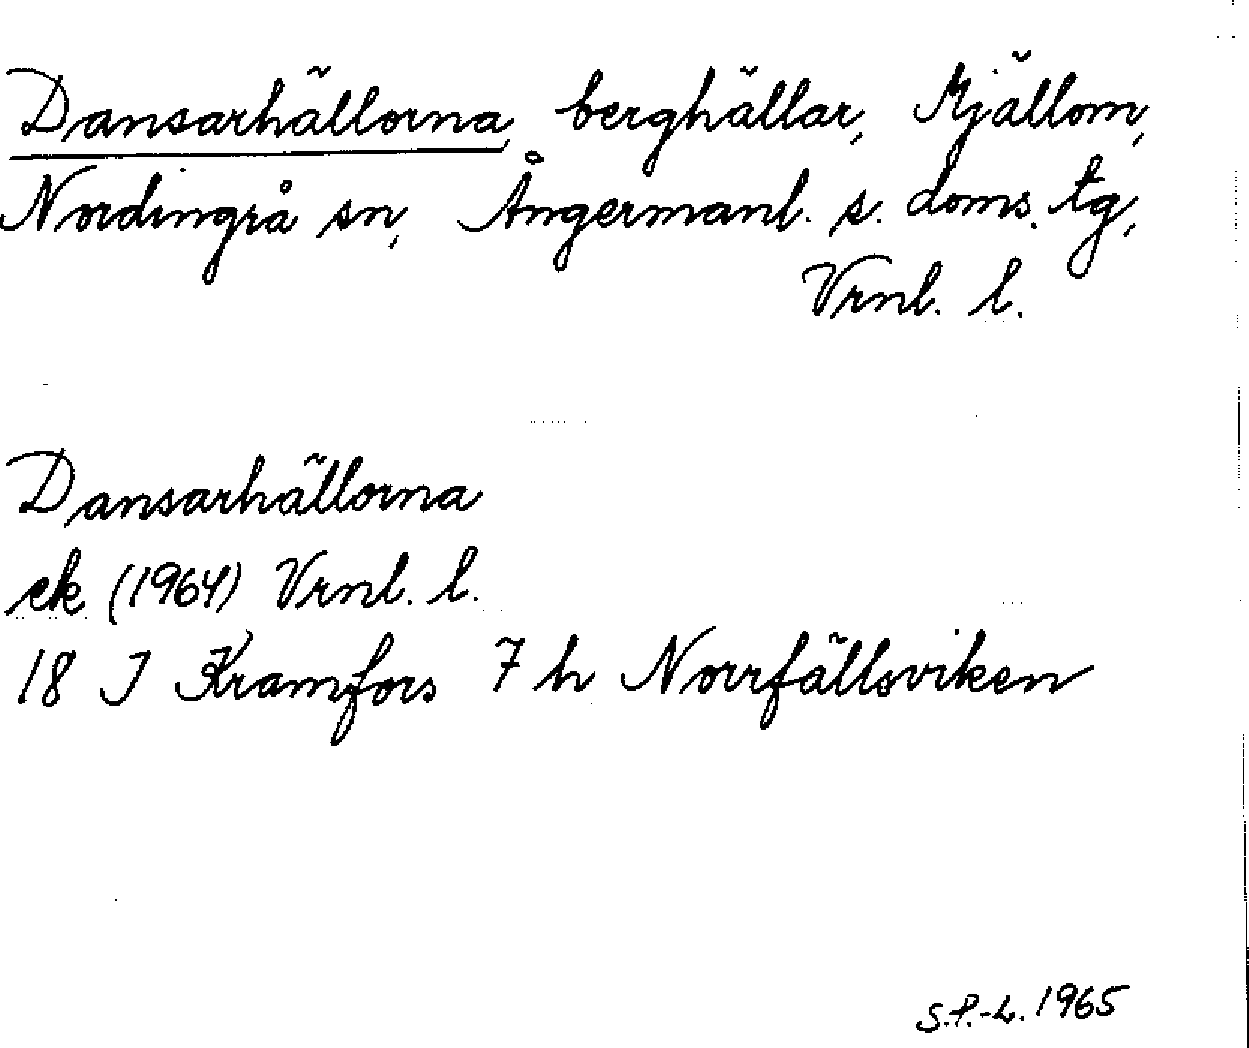 Dansarhällorna, berghällar, Mjällom,
Nordingrå sn, Ångermanl. s. doms. tg,
Vrnl. l.
Dansarhällorna
ek (1964) Vrnl. l.
18 I Kramfors 7 h Norrfällsviken
S.P.-L. 1965